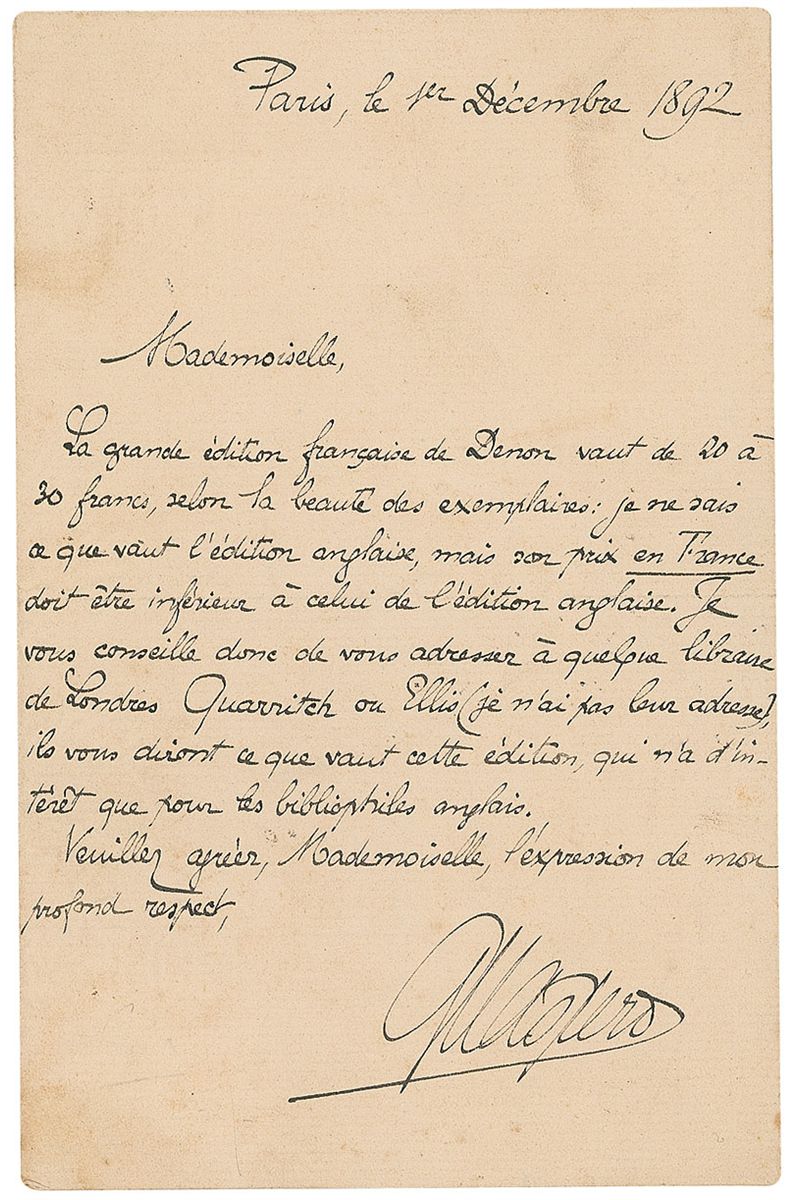 Paris, le 1er Décembre 1892
Mademoiselle,
La grande édition française de Denon vaut de 20 à
30 francs, selon la beauté des exemplaires: je ne sais
ce que vaut l'édition anglaise, mais son prix en France
doit être inférieur à celui de l'édition anglaise. Je
vous conseille donc de vous adresser à quelque libraire
de Londres Quarritch ou Ellis (je n'ai pas leur adresse),
ils vous diront ce que vaut cette édition, qui n'a d'in-
térêt que pour les bibliophiles anglais.
Veuillez agréer, Mademoiselle, l'expression de mon
profond respect,
GMaspero